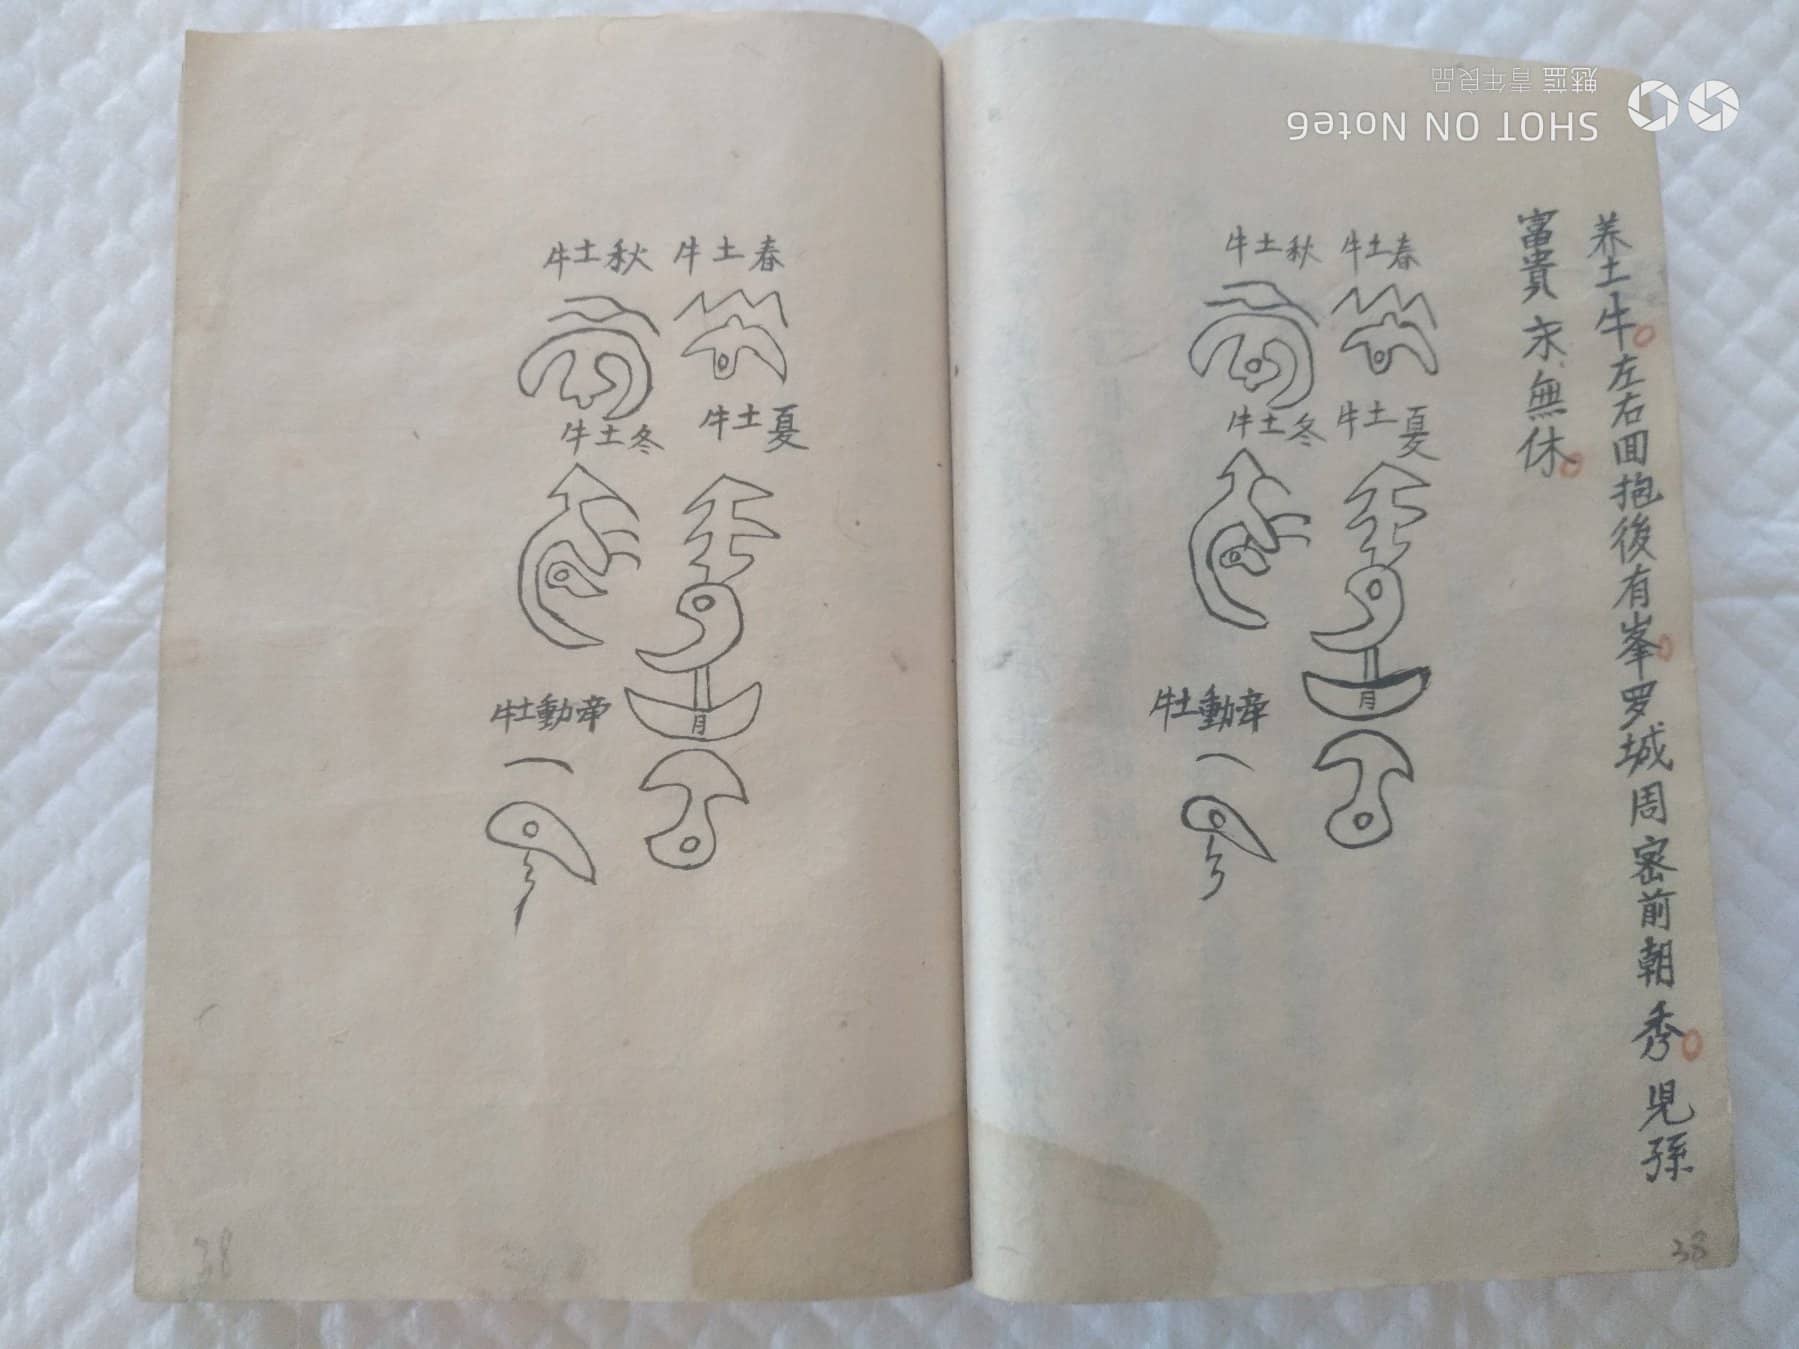 养土牛左右回抱後有峯罗城周密前朝秀児孫
富貴永無休
春土牛
秋土牛
夏土牛
冬土牛
月
牵動土牛
38
春土牛
秋土牛
夏土牛
冬土牛
月
牵動土牛
38
SHOT ON Note6
魅蓝 青年良品